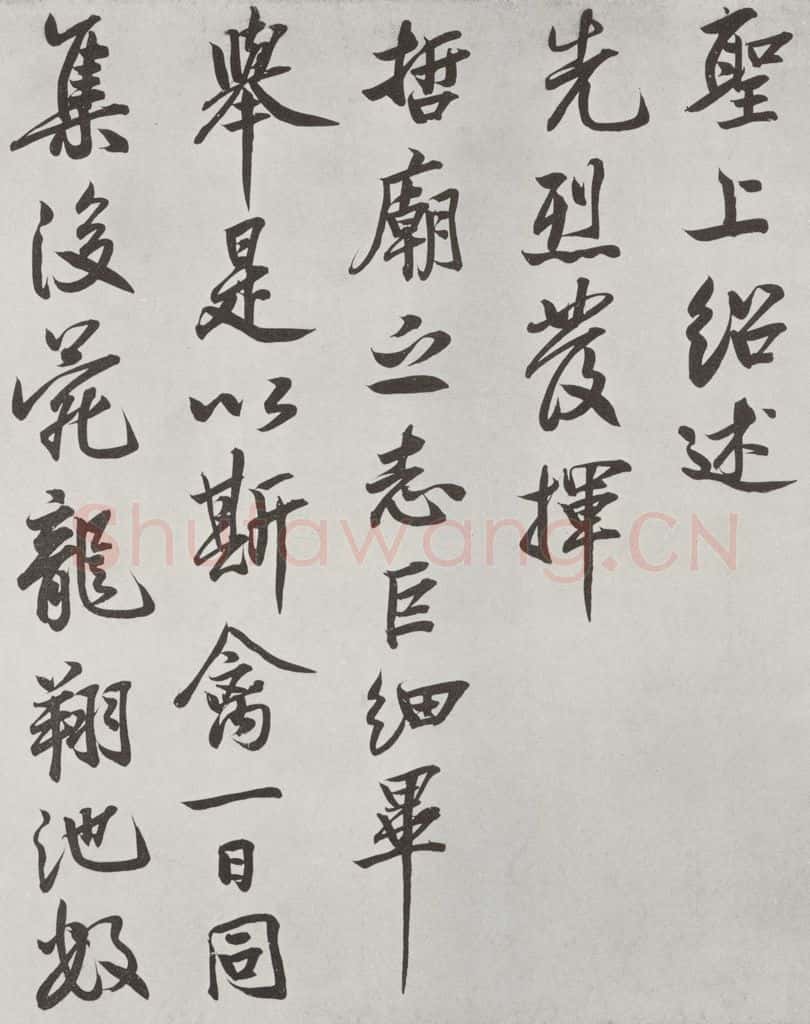 聖上紹述
先烈發揮
哲廟之志巨細畢
舉是以斯禽一日同
集後苑龍翔池數
Shufawang.CN